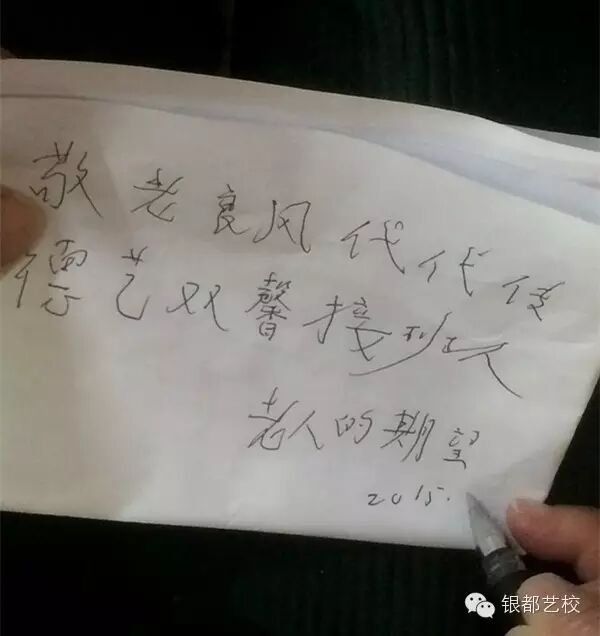 敬老良风代代传
德艺双馨接班人
老人的期望
2015.
银都艺校